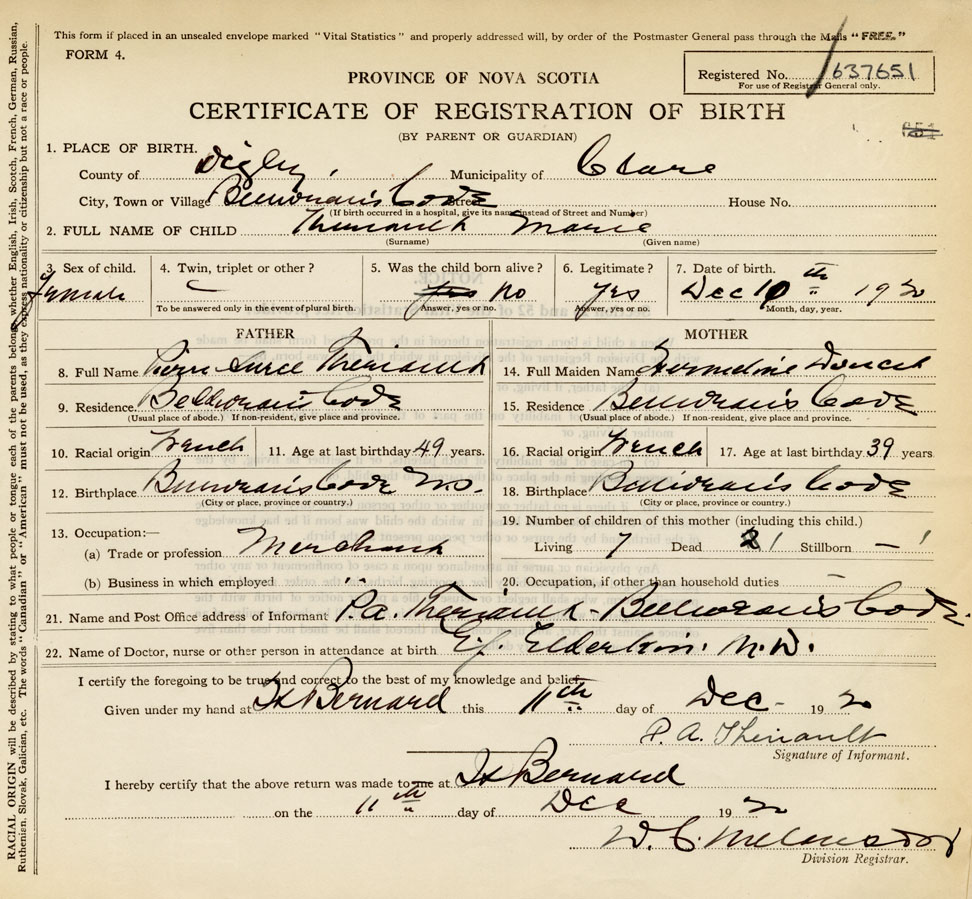 This form if placed in an unsealed envelope marked "Vital Statistics" and properly addressed will, by order of the Postmaster General pass through the Mails "FREE."
FORM 4.
Registered No. 637651
For use of Registrar General only.
PROVINCE OF NOVA SCOTIA
CERTIFICATE OF REGISTRATION OF BIRTH
(BY PARENT OR GUARDIAN)
1. PLACE OF BIRTH.
County of Digby, Municipality of Clare
City, Town or Village Belliveau's Cove Street House No.
(If birth occurred in a hospital, give its name instead of Street and Number)
2. FULL NAME OF CHILD Theriault Marie
(Surname) (Given name)
3. Sex of child. 4. Twin, triplet or other? 5. Was the child born alive? 6. Legitimate? 7. Date of birth.
Female yes no yes Dec 10th 1920
To be answered only in the event of plural birth. Answer, yes or no. Answer, yes or no. Month, day, year.
FATHER MOTHER
8. Full Name Pierre Theriault 14. Full Maiden Name
9. Residence. Belliveau's Cove 15. Residence Belliveau's Cove
(Usual place of abode.) If non-resident, give place and province. (Usual place of abode.) If non-resident, give place and province.
10. Racial origin French 11. Age at last birthday 49 years. 16. Racial origin French 17. Age at last birthday. 39 years
12. Birthplace Belliveau's Cove N.S. 18. Birthplace Belliveau's Cove
(City or place, province or country.) (City or place, province or country.)
13. Occupation:— 19. Number of children of this mother (including this child.)
(a) Trade or profession Merchant Living 7 Dead 1 Stillborn — 1
(b) Business in which employed " 20. Occupation, if other than household duties —
21. Name and Post Office address of Informant P.A. Theriault - Belliveau's Cove.
22. Name of Doctor, nurse or other person in attendance at birth E.J. Elderkin. M.D.
I certify the foregoing to be true and correct to the best of my knowledge and belief.
Given under my hand at St Bernard this 11th day of Dec - 1920
P. A. Theriault
Signature of Informant.
I hereby certify that the above return was made to me at St Bernard
on the 11th day of Dec 1920
W. C. Melanson
Division Registrar.
RACIAL ORIGIN will be described by stating to what people or tongue each of the parents belong, whether English, Irish, Scotch, French, German, Russian,
Ruthenian, Slovak, Galician, etc. The words "Canadian" or "American" must not be used, as they express nationality or citizenship but not a race or people.